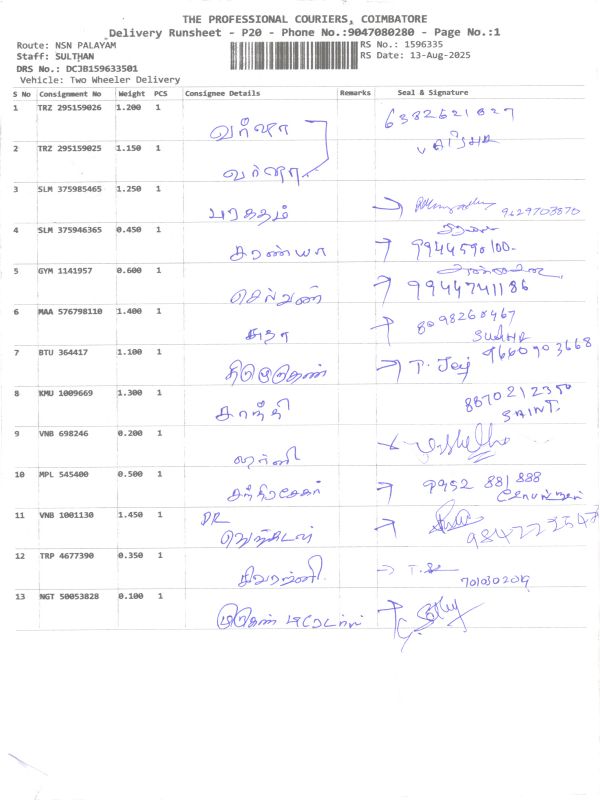 THE PROFESSIONAL COURIERS, COIMBATORE
Delivery Runsheet - P20 - Phone No.:9047080280 - Page No.:1
Route: NSN PALAYAM
RS No.: 1596335
Staff: SULTHAN
RS Date: 13-Aug-2025
DRS No.: DCJB159633501
Vehicle: Two Wheeler Delivery
S No Consignment No Weight PCS Consignee Details Remarks Seal & Signature
1 TRZ 295159026 1.200 1 வர்ஷா
2 TRZ 295159025 1.150 1 வர்ஷா
3 SLM 375985465 1.250 1 மரகதம் 9629703870
4 SLM 375946365 0.450 1 சரண்யா 9944590100
5 GYM 1141957 0.600 1 செல்வன் 9944741186
6 MAA 576798110 1.400 1 சுதா 8098260467
SUDHA
7 BTU 364417 1.100 1 T. Jey 9660903668
8 KMU 1009669 1.300 1 சாந்தி 8870212350
SAINT.
9 VNB 698246 0.200 1
10 MPL 545400 0.500 1 சந்திரசேகர் 9952 881 888
11 VNB 1001130 1.450 1 DR
12 TRP 4677390 0.350 1
13 NGT 50053828 0.100 1